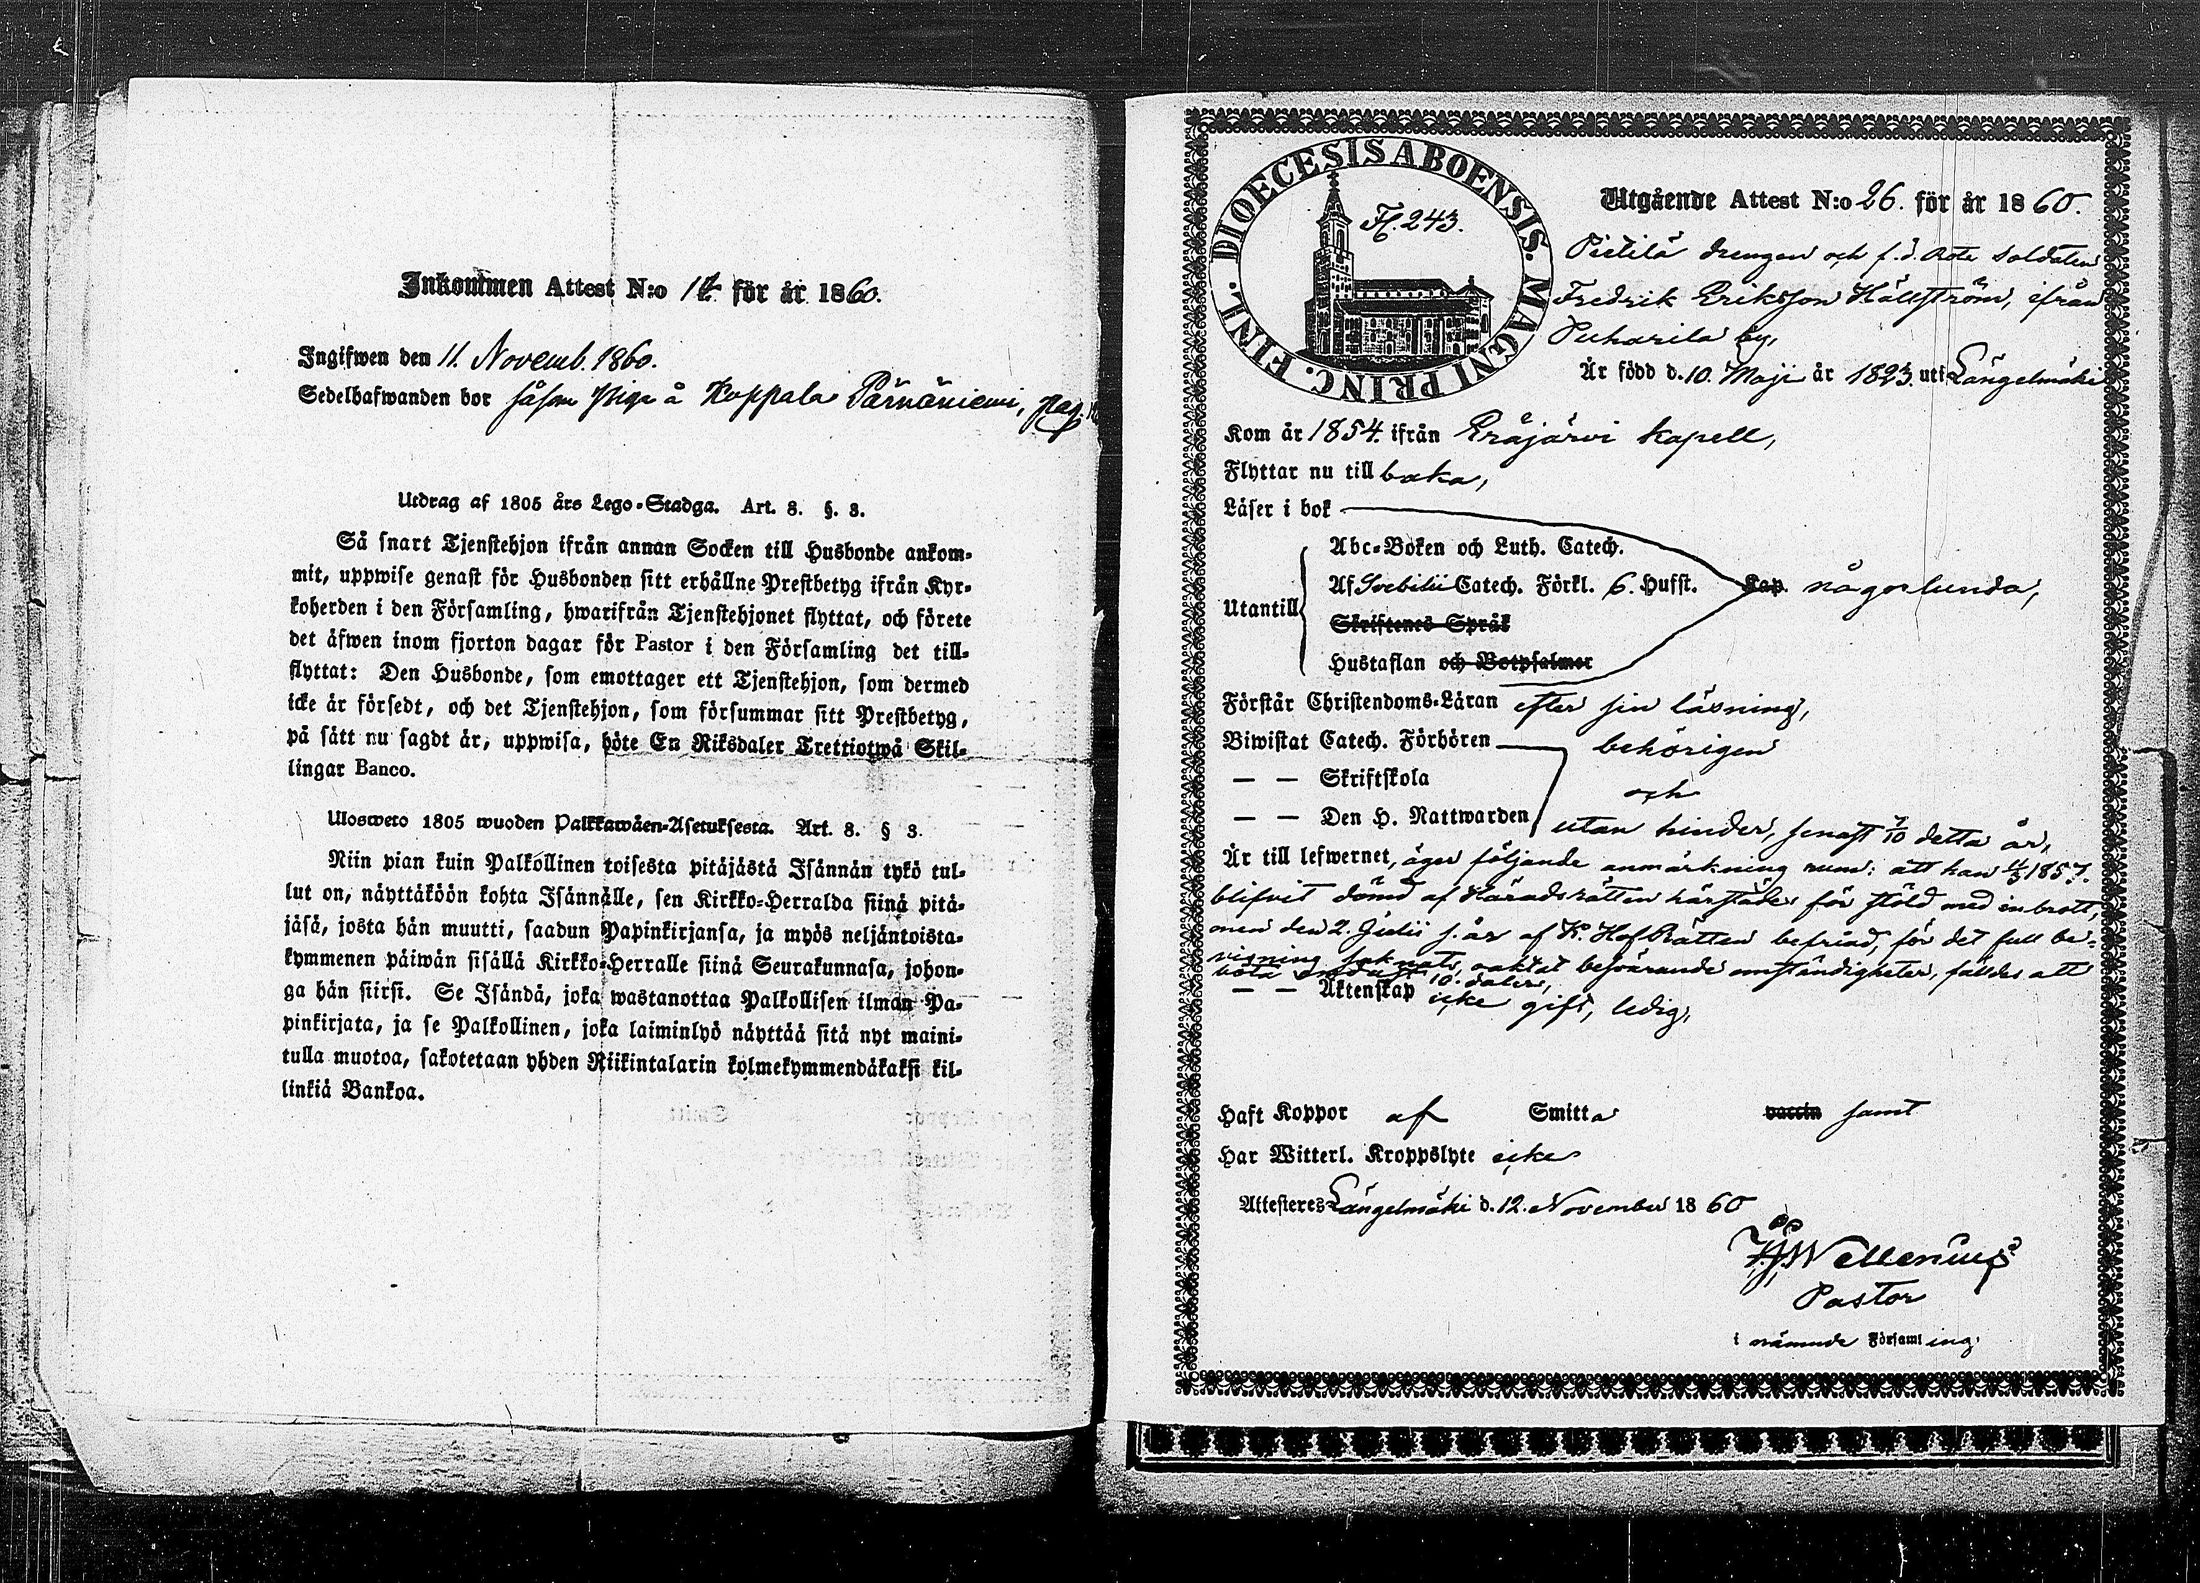 Inkommen Attest N:o för år 1860.
Ingifwen den 11. Novemb. 1860.
Sedelhafwanden bor såsom å Koppala Pärnäniemi,
Utdrag af 1805 års Lego-Stadga. Art. 8. §. 3.
Så snart Tjenstehjon ifrån annan Socken till Husbonde ankom-
mit, uppwise genast för Husbonden sitt erhållne Prestbetyg ifrån Kyr-
koherden i den Församling, hwarifrån Tjenstehjonet flyttat, och förete
det äfwen inom fjorton dagar för Pastor i den Församling det till-
flyttat: Den Husbonde, som emottager ett Tjenstehjon, som dermed
icke är försedt, och det Tjenstehjon, som försummar sitt Prestbetyg,
på sätt nu sagdt är, uppwisa, böte En Riksdaler Trettiotwå Skil-
lingar Banco.
Ulosweto 1805 wuoden Palkkawäen-Asetuksesta. Art. 8. § 3.
Niin pian kuin Palkollinen toisesta pitäjästä Isännän tykö tul-
lut on, näyttäköön kohta Isännälle, sen Kirkko-Herralda siinä pitä-
jäsä, josta hän muutti, saadun Papinkirjansa, ja myös neljäntoista-
kymmenen päiwän sisällä Kirkko-Herralle siinä Seurakunnasa, johon-
ga hän siirsi. Se Isändä, joka wastanottaa Palkollisen ilman Pa-
pinkirjata, ja se Palkollinen, joka laiminlyö näyttää sitä nyt maini-
tulla muotoa, sakotetaan yhden Riikintalarin kolmekymmendäkaksi kil-
linkiä Bankoa.
DIOECESIS ABOENSIS. MAGNI PRINC. FINL.
F. 243.
Utgående Attest N:o 26. för år 1860.
Pietilä drengen och f.d. Rote Soldaten
Fredrik Eriksson Hällström, ifrån
Puharila by,
Är född d. 10. Maji år 1823. uti Längelmäki
Kom år 1854. ifrån Eräjärvi kapell,
Flyttar nu till baka,
Läser i bok
Abc-Boken och Luth. Catech.
Utantill Af Svebilii Catech. Förkl. 6. Hufst. Kap. någorlunda,
Skriftenes Språk
Hustaflan och Botpsalmer
Förstår Christendoms-Läran efter sin läsning,
Biwistat Catech. Förhören behörigen
— — Skriftskola och
— — Den H. Nattwarden utan hinder, senast 7/10 detta år,
Är till lefwernet, äger följande anmärkning num: att han 1857.
blifvit dömd af Häradsrätten härstädes för stöld med inbrott,
men den 2. Julii s. år af K. HofRätten befriad, för det full be-
visning saknats, oaktat besvärande omständigheter, fälldes att
böta endast 10. daler,
— — Äktenskap icke gift, ledig,
Haft Koppor af Smitta vaccin samt
Har Witterl. Kroppslyte icke
Attesteres Längelmäki d. 12. November 1860
Wellenius
Pastor
i nämnde Församling.